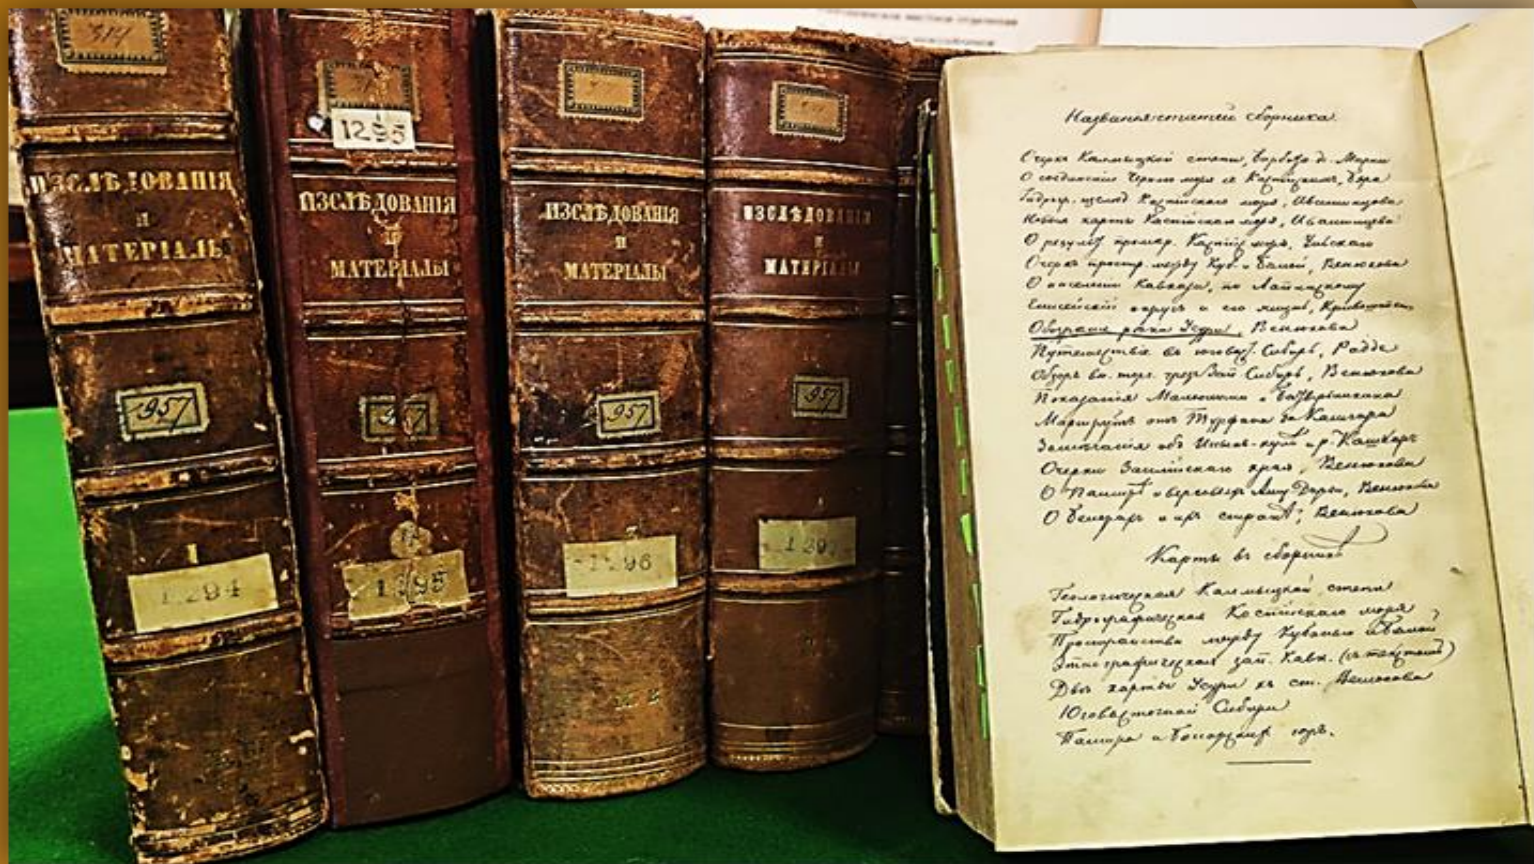 314
1295
ИЗСЛѢДОВАНІЯ
И
МАТЕРІАЛЫ
957
1
1294
ИЗСЛѢДОВАНІЯ
И
МАТЕРІАЛЫ
957
1295
ИЗСЛѢДОВАНІЯ
И
МАТЕРІАЛЫ
957
1296
ИЗСЛѢДОВАНІЯ
И
МАТЕРІАЛЫ
957
1297
Названія статей сборника
Очерк Калмыцкой степи, Барбота де Марни
О соединеніи Чернаго моря съ Каспійскимъ, Бэра
Гидрогр. изслед. Каспійскаго моря, Ивашинцова
Новыя карты Каспійскаго моря, Ивашинцова
О результ. промер. Каспійс. моря, Ульскаго
Очеркъ простр. между Куб. и Белой, Венюкова
О населеніи Кавказа, по
Енисейскій округъ и его жизнь, Кривошапкин
Обозреніе реки Усури, Венюкова
Путешествіе въ юговост. Сибирь, Радде
Венюкова
Показанія
Маршрутъ отъ Турфана до Кашгара
Замечанія объ Иссык-куле и р. Кошкаръ
Очерки Заилійскаго края, Венюкова
О Памире и верховьях Аму-Дарьи, Венюкова
О Белорѣ и его странѣ, Венюкова
Карты въ сборникѣ
Геологическая Калмыцкой степи
Гидрографическая Каспійскаго моря
Пространства между Кубанью и Белой
Этнографическая зап. Кавк. (съ текстомъ)
Две карты Усури къ ст. Венюкова
Юговосточной Сибири
Памира и Болорских гор.